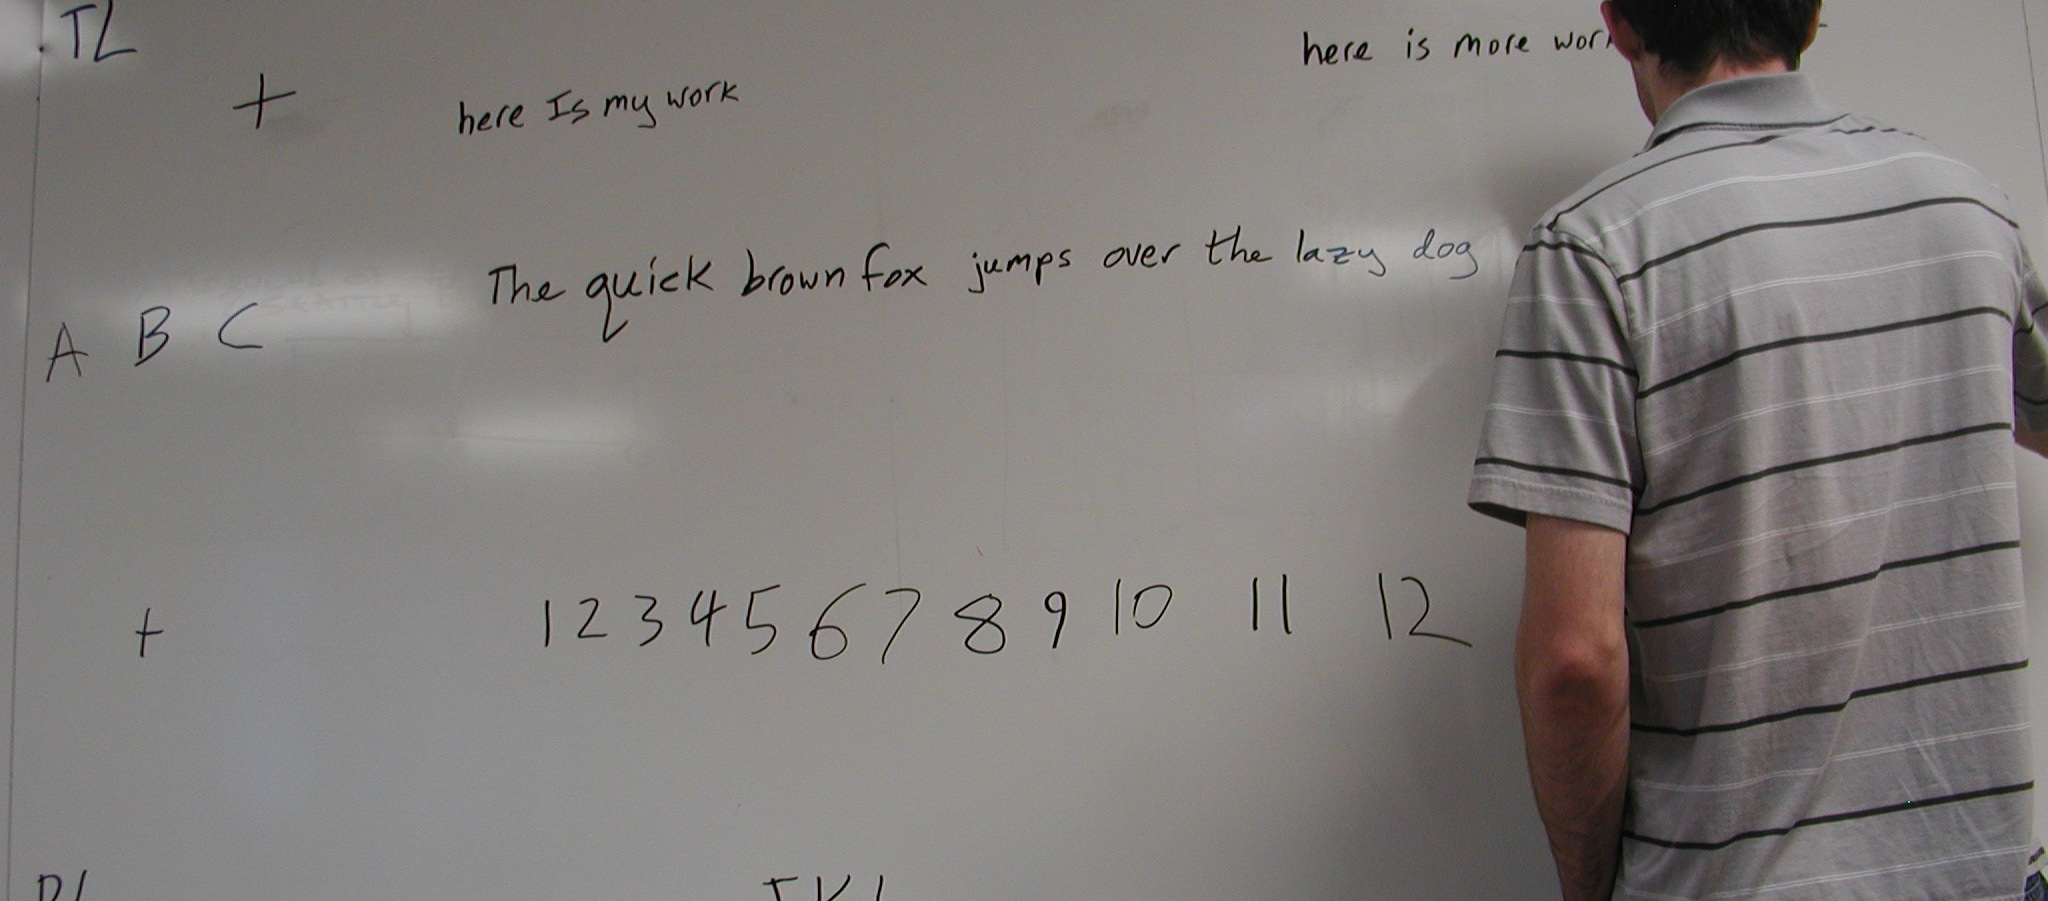 TL
+ here Is my work
here is more work
The quick brown fox jumps over the lazy dog
A B C
+ 1 2 3 4 5 6 7 8 9 10 11 12